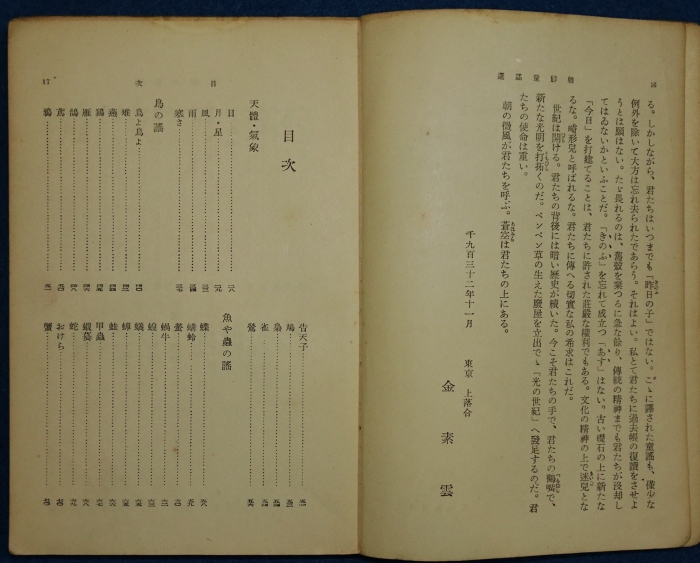 朝鮮童謠選
る。しかしながら、君たちはいつまでも「昨日の子」ではない。こゝに譯された童謠も、僅少な
例外を除いて大方は忘れ去られたであらう。それはよい。私とて君たちに過去帳の復讀をさせよ
うとは願はない。たゞ畏れるのは、舊殼を棄つるに急な餘り、傳統の精神までも君たちが沒却し
てはゐないかといふことだ。「きのふ」を忘れて成立つ「あす」はない。古い礎石の上に新たな
「今日」を打建てることは、君たちに許された莊嚴な權利でもある。文化の精神の上で迷兒とな
るな。畸形兒と呼ばれるな。君たちに傳へる切實な私の希求はこれだ。
世紀は開ける。君たちの背後には暗い歷史が續いた。今こそ君たちの手で、君たちの鶴嘴で、
新たな光明を打拓くのだ。ペンペン草の生えた廢屋を立出でゝ「光の世紀」へ發足するのだ。君
たちの使命は重い。
朝の微風が君たちを呼ぶ。蒼空は君たちの上にある。
千九百三十二年十一月
東京 上落合
金素雲
目次
目次
天體・氣象
日
月・星
風
雨
寒さ
鳥の謠
鳥よ鳥よ
雉
燕
鷄
雁
鴿
鳶
鴉
告天子
鳩
梟
雀
鶯
魚や蟲の謠
蝶
蜻蛉
螢
蝸牛
蝗
蟻
蟬
蛙
甲蟲
蝦蟇
蛇
おけら
蟹